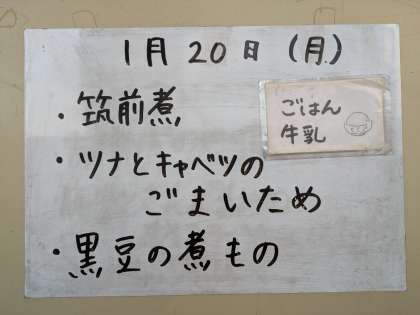 1月20日(月)
・筑前煮
・ツナとキャベツの
ごまいため
・黒豆の煮もの
ごはん
牛乳